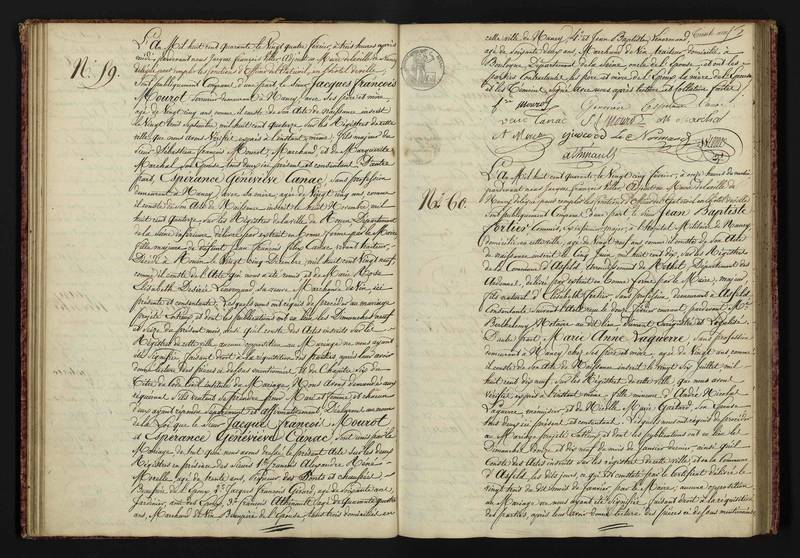 N.º 59.
L'An Mil huit cent quarante le Vingt quatre février, à trois heures après
midi, pardevant nous Jacques François Adjoint au Maire de la ville de Nancy
délégué pour remplir les fonctions d'Officier de l'état civil, en l'hôtel de ville,
Sont publiquement Comparus d'une part, le Sieur Jacques François
Mourot, demeurant à Nancy, avec ses père et mère,
agé de Vingt cinq ans, comme il conste de son Acte de Naissance inscrit
le Vingt Septembre mil huit cent quatorze, sur les Registres de cette
ville, que nous avons Vérifié exprès à l'instant même; fils majeur du
Sieur Sébastien François Mourot, Marchand, et de Marguerite
Marchal, son Epouse, tout deux ici présents et consentants. D'autre
part, Espérance Geneviève Canac, Sans profession
demeurant à Nancy, avec sa mère, agée de Vingt cinq ans, comme
il conste de son Acte de Naissance inscrit le huit Novembre mil
huit cent quatorze, sur les Registres de la ville de Rouen, Département
de la Seine inférieure, délivré par extrait en bonne forme par le Maire
fille majeure de défunt Jean François Canac, vivant
Décédé à Rouen le Vingt cinq Décembre, mil huit cent Vingt neuf,
comme il conste de l'Acte qui nous a été remis et de Marie Thérèse
Elisabeth Désirée Lenormand, sa veuve Marchande de Vin, ici
présente et consentante. Lesquels nous ont requis de procéder au mariage
projeté entr'eux et dont les publications ont eu lieu les Dimanches neuf
et seize du présent mois, ainsi qu'il conste des Actes inscrits sur les
Registres de cette ville, aucune opposition au Mariage ne nous ayant
été Signifiée, faisant droit à la réquisition des parties, après leur avoir
donné lecture des pièces ci-dessus mentionnées, et du Chapitre Six du
Titre du code civil intitulé du Mariage, Nous Avons demandé aux
requérants s'ils veulent se prendre pour Mari et femme, et chacun
d'eux ayant répondu séparément et affirmativement, Déclarons au nom
de la Loi que le Sieur Jacques François Mourot
et Espérance Geneviève Canac, Sont unis par le
Mariage. De tout quoi nous avons dressé le présent Acte sur les deux
Registres en présence des Sieurs 1.º François Alexandre
Morelle, agé de trente ans, Ingénieur des Ponts et chaussées,
Beaufrère de l'Epoux, 2.º Jacques François Gérard, agé de Soixante ans,
Jardinier, ami de l'Epoux, 3.º François agé de quarante quatre
ans, Marchand de Vin Beaupère de l'Epouse, tous trois domiciliés en
cette ville de Nancy, 4.º et Jean Baptiste Lenormand,
agé de Soixante deux ans, Marchand de Vin, domicilié à
Boulogne, Département de la Seine, oncle de l'Epouse, et ont les
parties Contractantes, les père et mère de l'Epoux, la mère de l'Epouse
et les témoins, Signé avec nous après lecture et collation faite.
Mourot Geneviève Espérance Canac
veuve Canac f Mourot M Marchal
giscard le Normand
N.º 60.
L'An Mil huit cent quarante, le Vingt cinq février, à onze heures du matin
pardevant nous Jacques François Adjoint au Maire de la ville de
Nancy délégué pour remplir les fonctions d'Officier de l'état civil, en l'hôtel de ville
Sont publiquement Comparus d'une part le Sieur Jean Baptiste
Fortier, Commis, Infirmier major, à l'hôpital Militaire de Nancy,
domicilié en cette ville, agé de Vingt neuf ans, comme il conste de son Acte
de naissance inscrit le Cinq Juin, mil huit cent dix, sur les Registres
de la Commune d'Asfeld, Arrondissement de Rethel, Département des
Ardennes, délivré par extrait en bonne forme par le Maire, majeur
fils naturel d'Elisabeth Fortier, Sans profession, demeurant à Asfeld
Consentante suivant Acte reçu le douze février courant, pardevant M.e
Barthelemy Notaire au dit lieu, Dument Enregistré et Légalisé.
D'autre part, Marie Anne Laguerre, Sans profession
demeurant à Nancy, chez ses père et mère, agée de Vingt ans, comme
il conste de son Acte de Naissance inscrit le vingt six Juillet mil
huit cent dix neuf, sur les Registres de cette ville, que nous avons
Vérifié exprès à l'instant même, fille mineure d'André Nicolas
Laguerre, menuisier, et de Marie, son Epouse
tous deux ici présents, et consentant. Lesquels nous ont requis de procéder
au Mariage projeté entr'eux, et dont les publications ont eu lieu les
Dimanches douze, et dix neuf du mois de Janvier dernier, ainsi qu'il
Conste des Actes inscrits sur les registres de cette ville, et en la commune
d'Asfeld, les dits jours, ce qui est constaté par le Certificat délivré le
vingt trois du dit mois de Janvier, par le Maire, aucune opposition
au Mariage ne nous ayant été Signifiée, faisant droit à la réquisition
des parties, après leur avoir donné lecture des pièces ci-dessus mentionnées